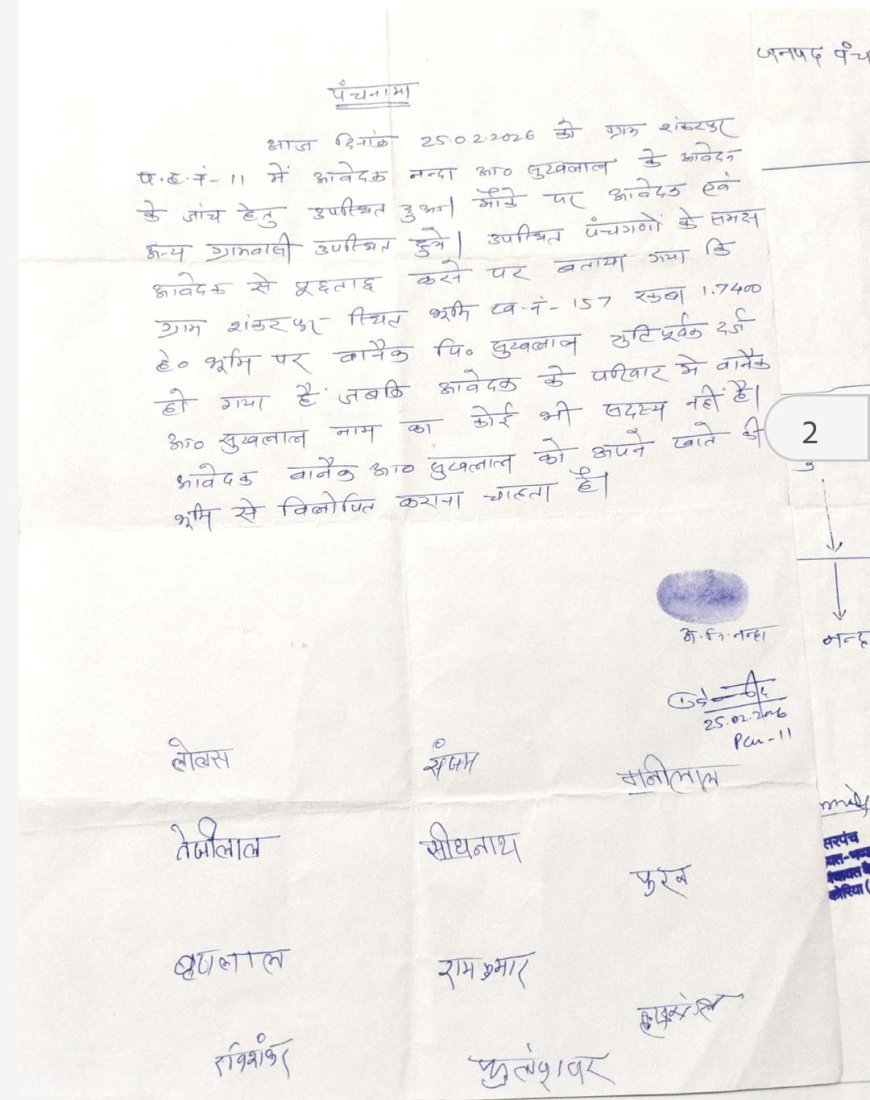 जनपद पंच
पंचनामा
आज दिनांक 25.02.2026 को ग्राम शंकरपुर
प.ह.नं-11 में आवेदक नन्दा आ० सुखलाल के आवेदन
के जांच हेतु उपस्थित हुआ। मौके पर आवेदक एवं
अन्य ग्रामवासी उपस्थित हुये। उपस्थित पंचगणों के समक्ष
आवेदक से पूछताछ करने पर बताया गया कि
ग्राम शंकरपुर स्थित भूमि ख.नं-157 रकबा 1.7400
हे० भूमि पर वानैक पि० सुखलाल त्रुटिपूर्वक दर्ज
हो गया है जबकि आवेदक के परिवार में वानैक
आ० सुखलाल नाम का कोई भी सदस्य नहीं है।
आवेदक वानैक आ० सुखलाल को अपने खाते की
भूमि से विलोपित कराना चाहता है।
2
अ.नि.नन्हा
नन्द
25.02.2026
PCN-11
संजय
मनीलाल
तेजीलाल
सरपंच
फुरन
रामकुमार
रविशंकर
कोरिया (